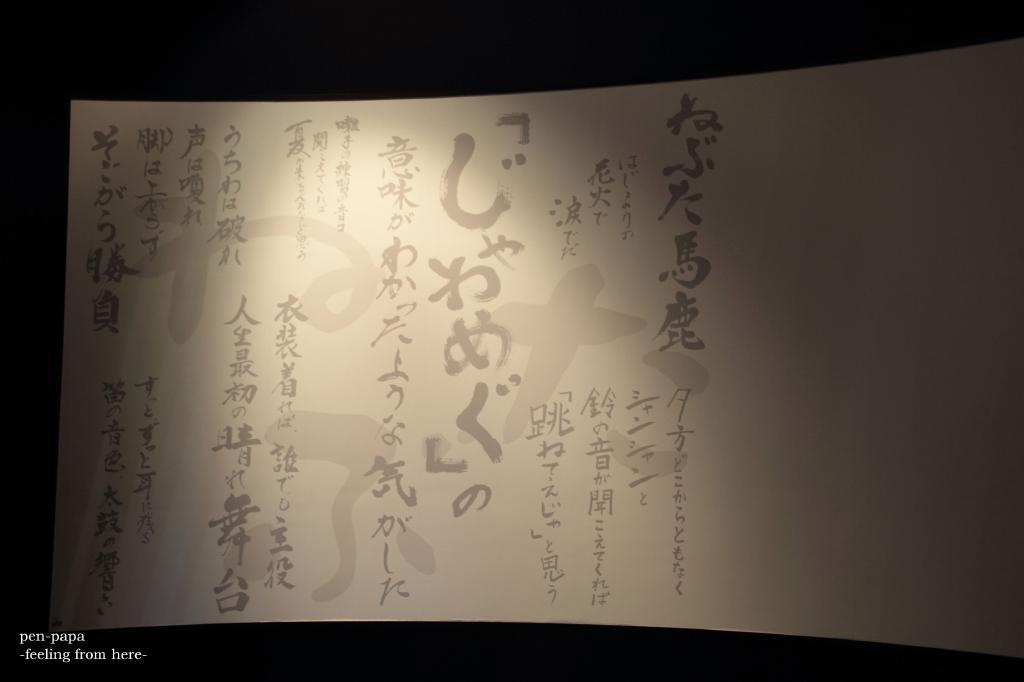 ねぶた馬鹿
夕方どこからともなく
シャンシャンと
鈴の音が聞こえてくれば
「跳ねてえじゃ」と思う
はじまりの
花火で
涙でだ
「じゃわめぐ」の
意味がわかったような気がした
囃子の練習の音が
聞こえてくれば
夏が来たんだなと思う
衣装着れば、誰でも主役
人生最初の晴れ舞台
うちわは破れ
声は嗄れ
脚は上がらず
そこからが勝負
ずっとずっと耳に残る
笛の音色、太鼓の響き
ねぶた
pen-papa
-feeling from here-